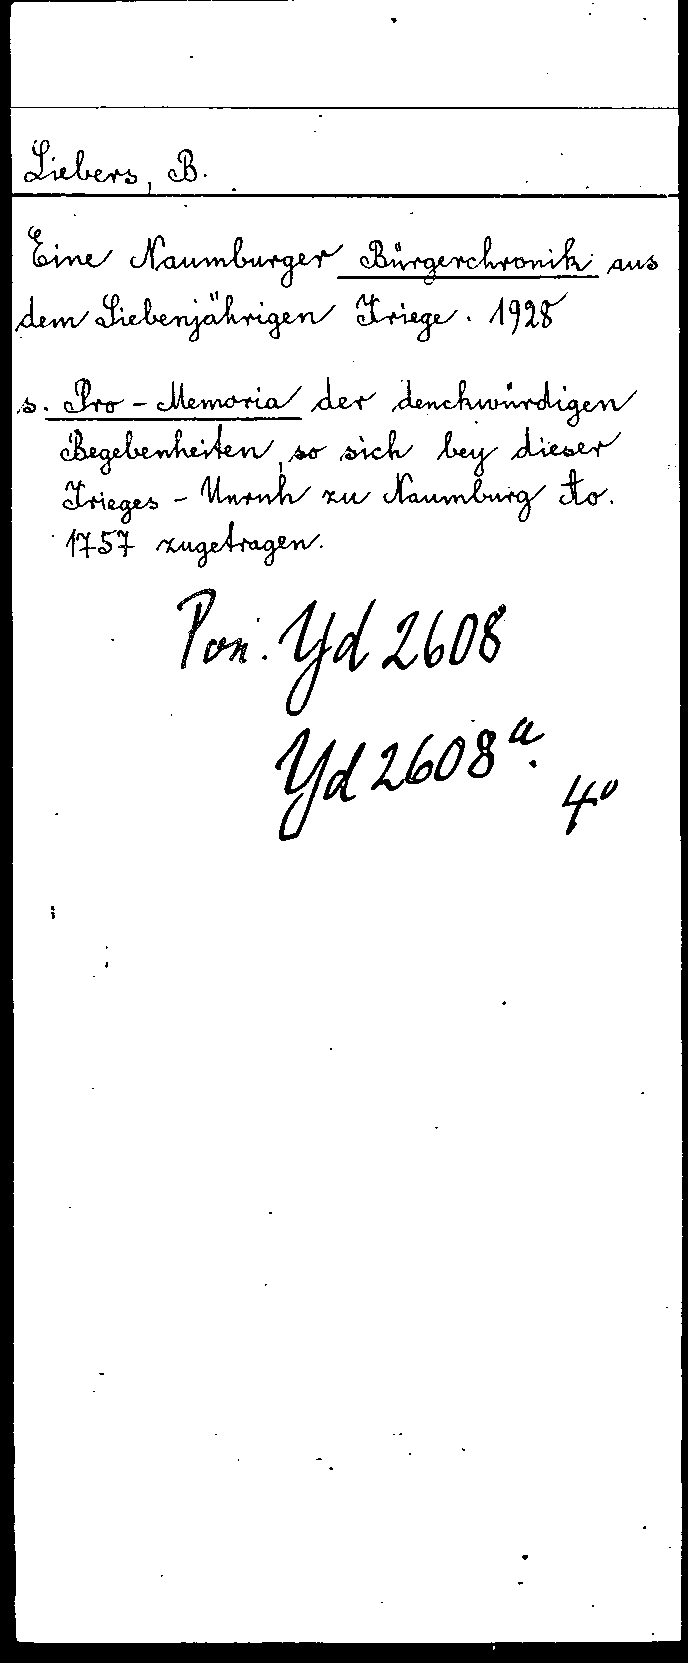 Liebers, B.
Eine Naumburger Bürgerchronik aus
dem Siebenjährigen Kriege. 1928
s. Pro-Memoria der denckwürdigen
Begebenheiten, so sich bey dieser
Krieges-Unruh zu Naumburg Ao.
1757 zugetragen.
Pon. Yd 2608
Yd 2608a.
4°